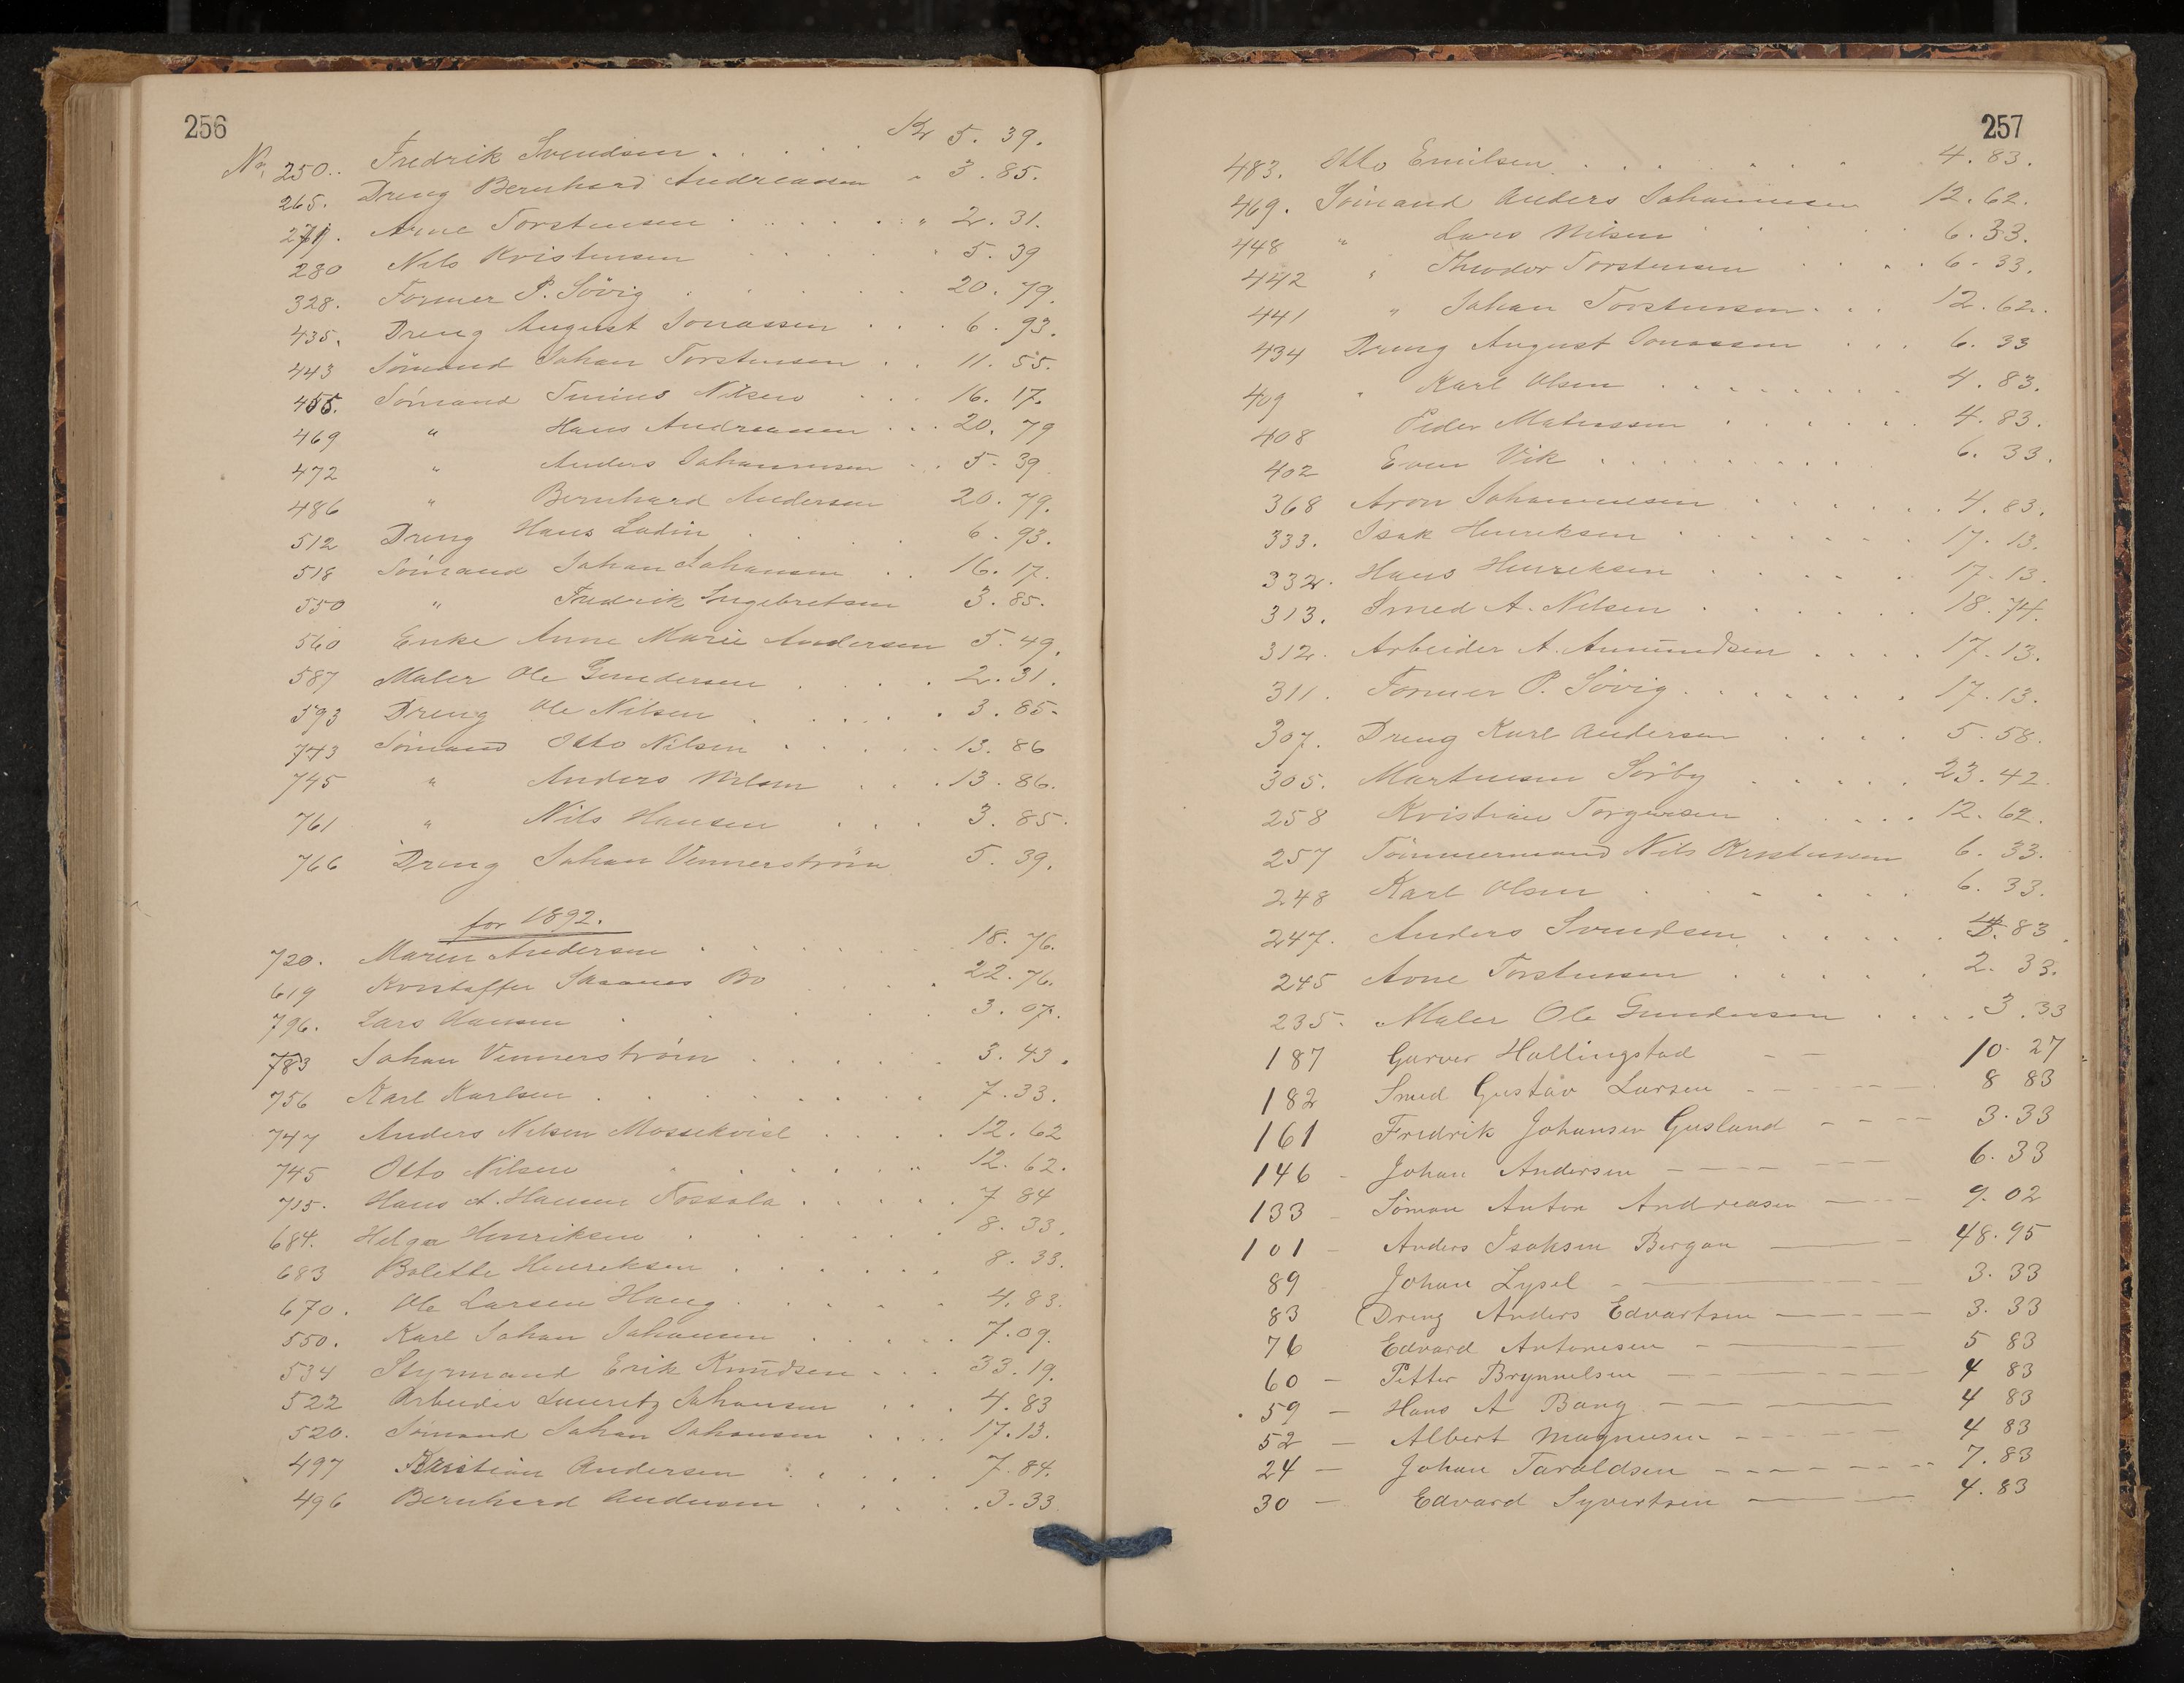 256
No. 250.. Fredrik Svendsen . . . . . Kr 5. 39.
265. Dreng Bernhard Andreassen " 3. 85.
271. Arne Torstensen . . . . . " 2. 31.
280 Nils Kristensen . . . . . 5. 39
328. Former P. Sövig . . . . . 20. 79.
435. Dreng August Jonassen . . . 6. 93.
443 Sömand Johan Torstensen . . 11. 55.
455. Sömand Nilsen . . . 16. 17.
469 " Hans Andreassen . . . 20. 79
472 " Anders Johannesen . . 5. 39
486 " Bernhard Andersen 20. 79.
512 Dreng Hans Ludin . . . . 6. 93.
518 Sömand Johan Johansen . . 16. 17.
550 " Fredrik Ingebretsen 3. 85.
560 Enke Anne Marie Andersen 5. 49.
587 Maler Ole Gundersen . . . . 2. 31.
593 Dreng Ole Nilsen . . . . . 3. 85.
743 Sömand Otto Nilsen . . . . . 13. 86
745 " Anders Nilsen . . . 13. 86.
761 " Nils Hansen . . . 3. 85.
766 Dreng Johan Vennerström 5. 39.
for 1892.
720. Maren Andersen . . . . . 18. 76.
619 Kristoffer Bo . . . . 22. 76.
796. Lars Hansen . . . . . 3. 07.
783 Johan Vennerström . . . . . 3. 43.
756 Karl Karlsen . . . . . . . 7. 33.
747 Anders Nilsen Mossekvist . . . . 12. 62
745 Otto Nilsen " . . . . . " 12. 62.
715. Hans A. Hansen Fossala . . . . . 7 84
684. Helga Henriksen . . . . . 8. 33.
683 Bolette Henriksen . . . . . . 8. 33.
670. Ole Larsen Haug . . . . . 4. 83.
550. Karl Johan Johansen . . . . . 7. 09.
534 Styrmand Erik Knudsen . . . 33. 19.
522 Arbeider Lauritz Johansen . . . 4. 83
520. Sömand Johan Johansen . . . . 17. 13.
497 Kristian Andersen . . . . . 7. 84.
496 Bernhard Andersen . . . . . 3. 33
257
483. Otto Emilsen . . . . . . . 4. 83.
469. Sömand Anders Johannesen 12. 62.
448 " Lars Nilsen . . . . . 6. 33.
442 " Theodor Torstensen . . . . 6. 33.
441 " Johan Torstensen . . . 12. 62.
434 Dreng August Jonassen . . . 6. 33
409 " Karl Olsen . . . . . . . . 4. 83.
408 Peder Mathissen . . . . . . 4. 83.
402 Even Vik . . . . . . . . . 6. 33.
368 Aron Johannesen . . . . . . . 4. 83.
333. Isak Henriksen . . . . . . . . 17. 13.
332. Hans Henriksen . . . . . . 17. 13.
313. Smed A. Nilsen . . . . . . 18. 74.
312. Arbeider A. Amundsen . . . . 17. 13.
311. Former P. Sövig . . . . . . . 17. 13.
307. Dreng Karl Andersen . . . . 5. 58.
305. Martinsen Sörby . . . . . . 23. 42.
258 Kristian Torgersen . . . . . 12. 62.
257 Tömmermand Nils Kristensen 6. 33.
248 Karl Olsen . . . . . . . 6. 33.
247. Anders Svendsen . . . . . 4. 83.
245 Arne Torstensen . . . . . . 2. 33.
235. Maler Ole Gundersen . . . . 3. 33
187 Garver Hallingstad – – 10. 27
182 Smed Gustav Larsen – – – – 8 83
161 Fredrik Johansen Gusland – – – 3. 33
146 – Johan Andersen – – – – – – – 6. 33
133 – Söman Anton Andreasen – – – 9. 02
101 – Anders Isaksen Bergan – – 48. 95
89 Johan Lysel – – – 3. 33
83 Dreng Anders Edvartsen – – – 3. 33
76 Edvard Antonesen – – – 5 83
60 – Petter Brynnelsen – – – – – 4 83
59 – Hans A Bang – – – – – 4 83
52 – Albert Magnusen – – – – – 4 83
24 – Johan Taraldsen – – – – – – – 7. 83
30 – Edvard Syvertsen – – – 4. 83